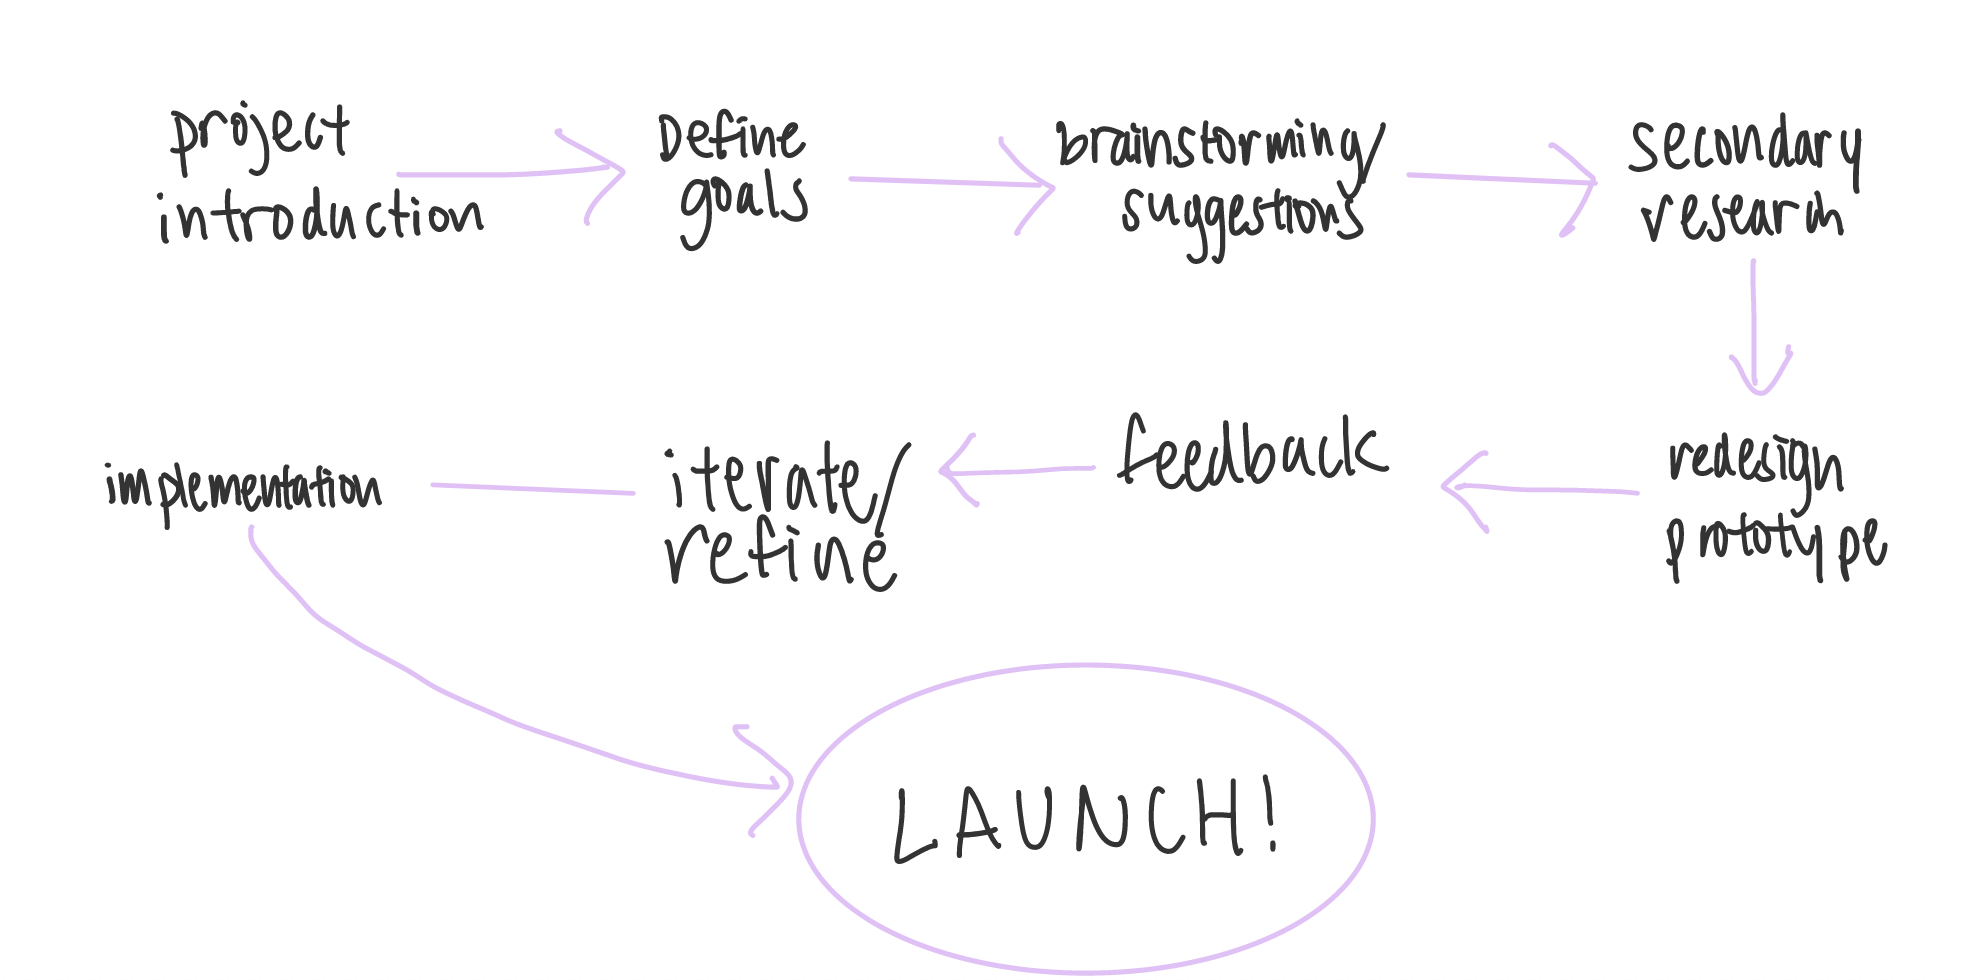 project
introduction
Define
goals
brainstorming/
suggestions
secondary
research
redesign
prototype
feedback
iterate/
refine
implementation
LAUNCH!